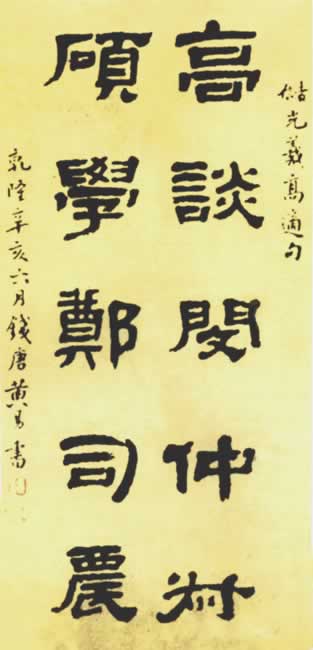 儲光羲高適句
高談閔仲叔
碩學鄭司農
乾隆辛亥六月錢唐黄易書